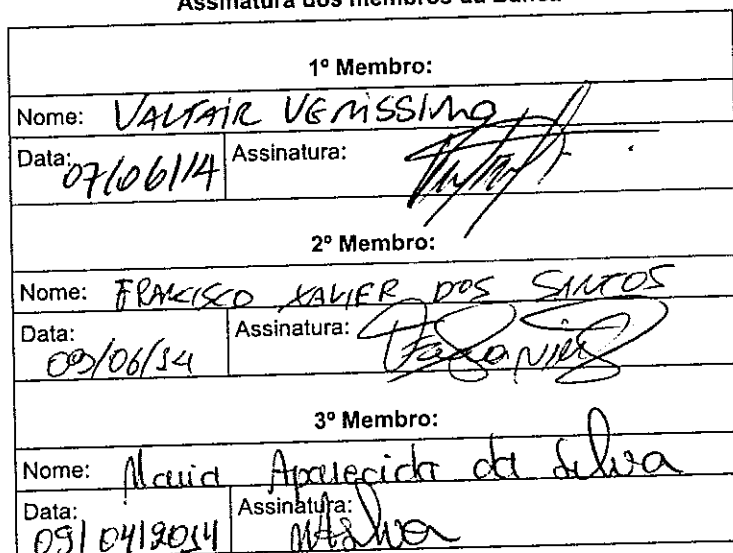 Assinatura dos membros da Banca
1º Membro:
Nome: VALTAIR VERISSIMO
Data: 07/06/14 Assinatura:
2º Membro:
Nome: FRANCISCO XAVIER DOS SANTOS
Data: 09/06/14 Assinatura:
3º Membro:
Nome: Maria Aparecida da Silva
Data: 09/04/2014 Assinatura: MASilva